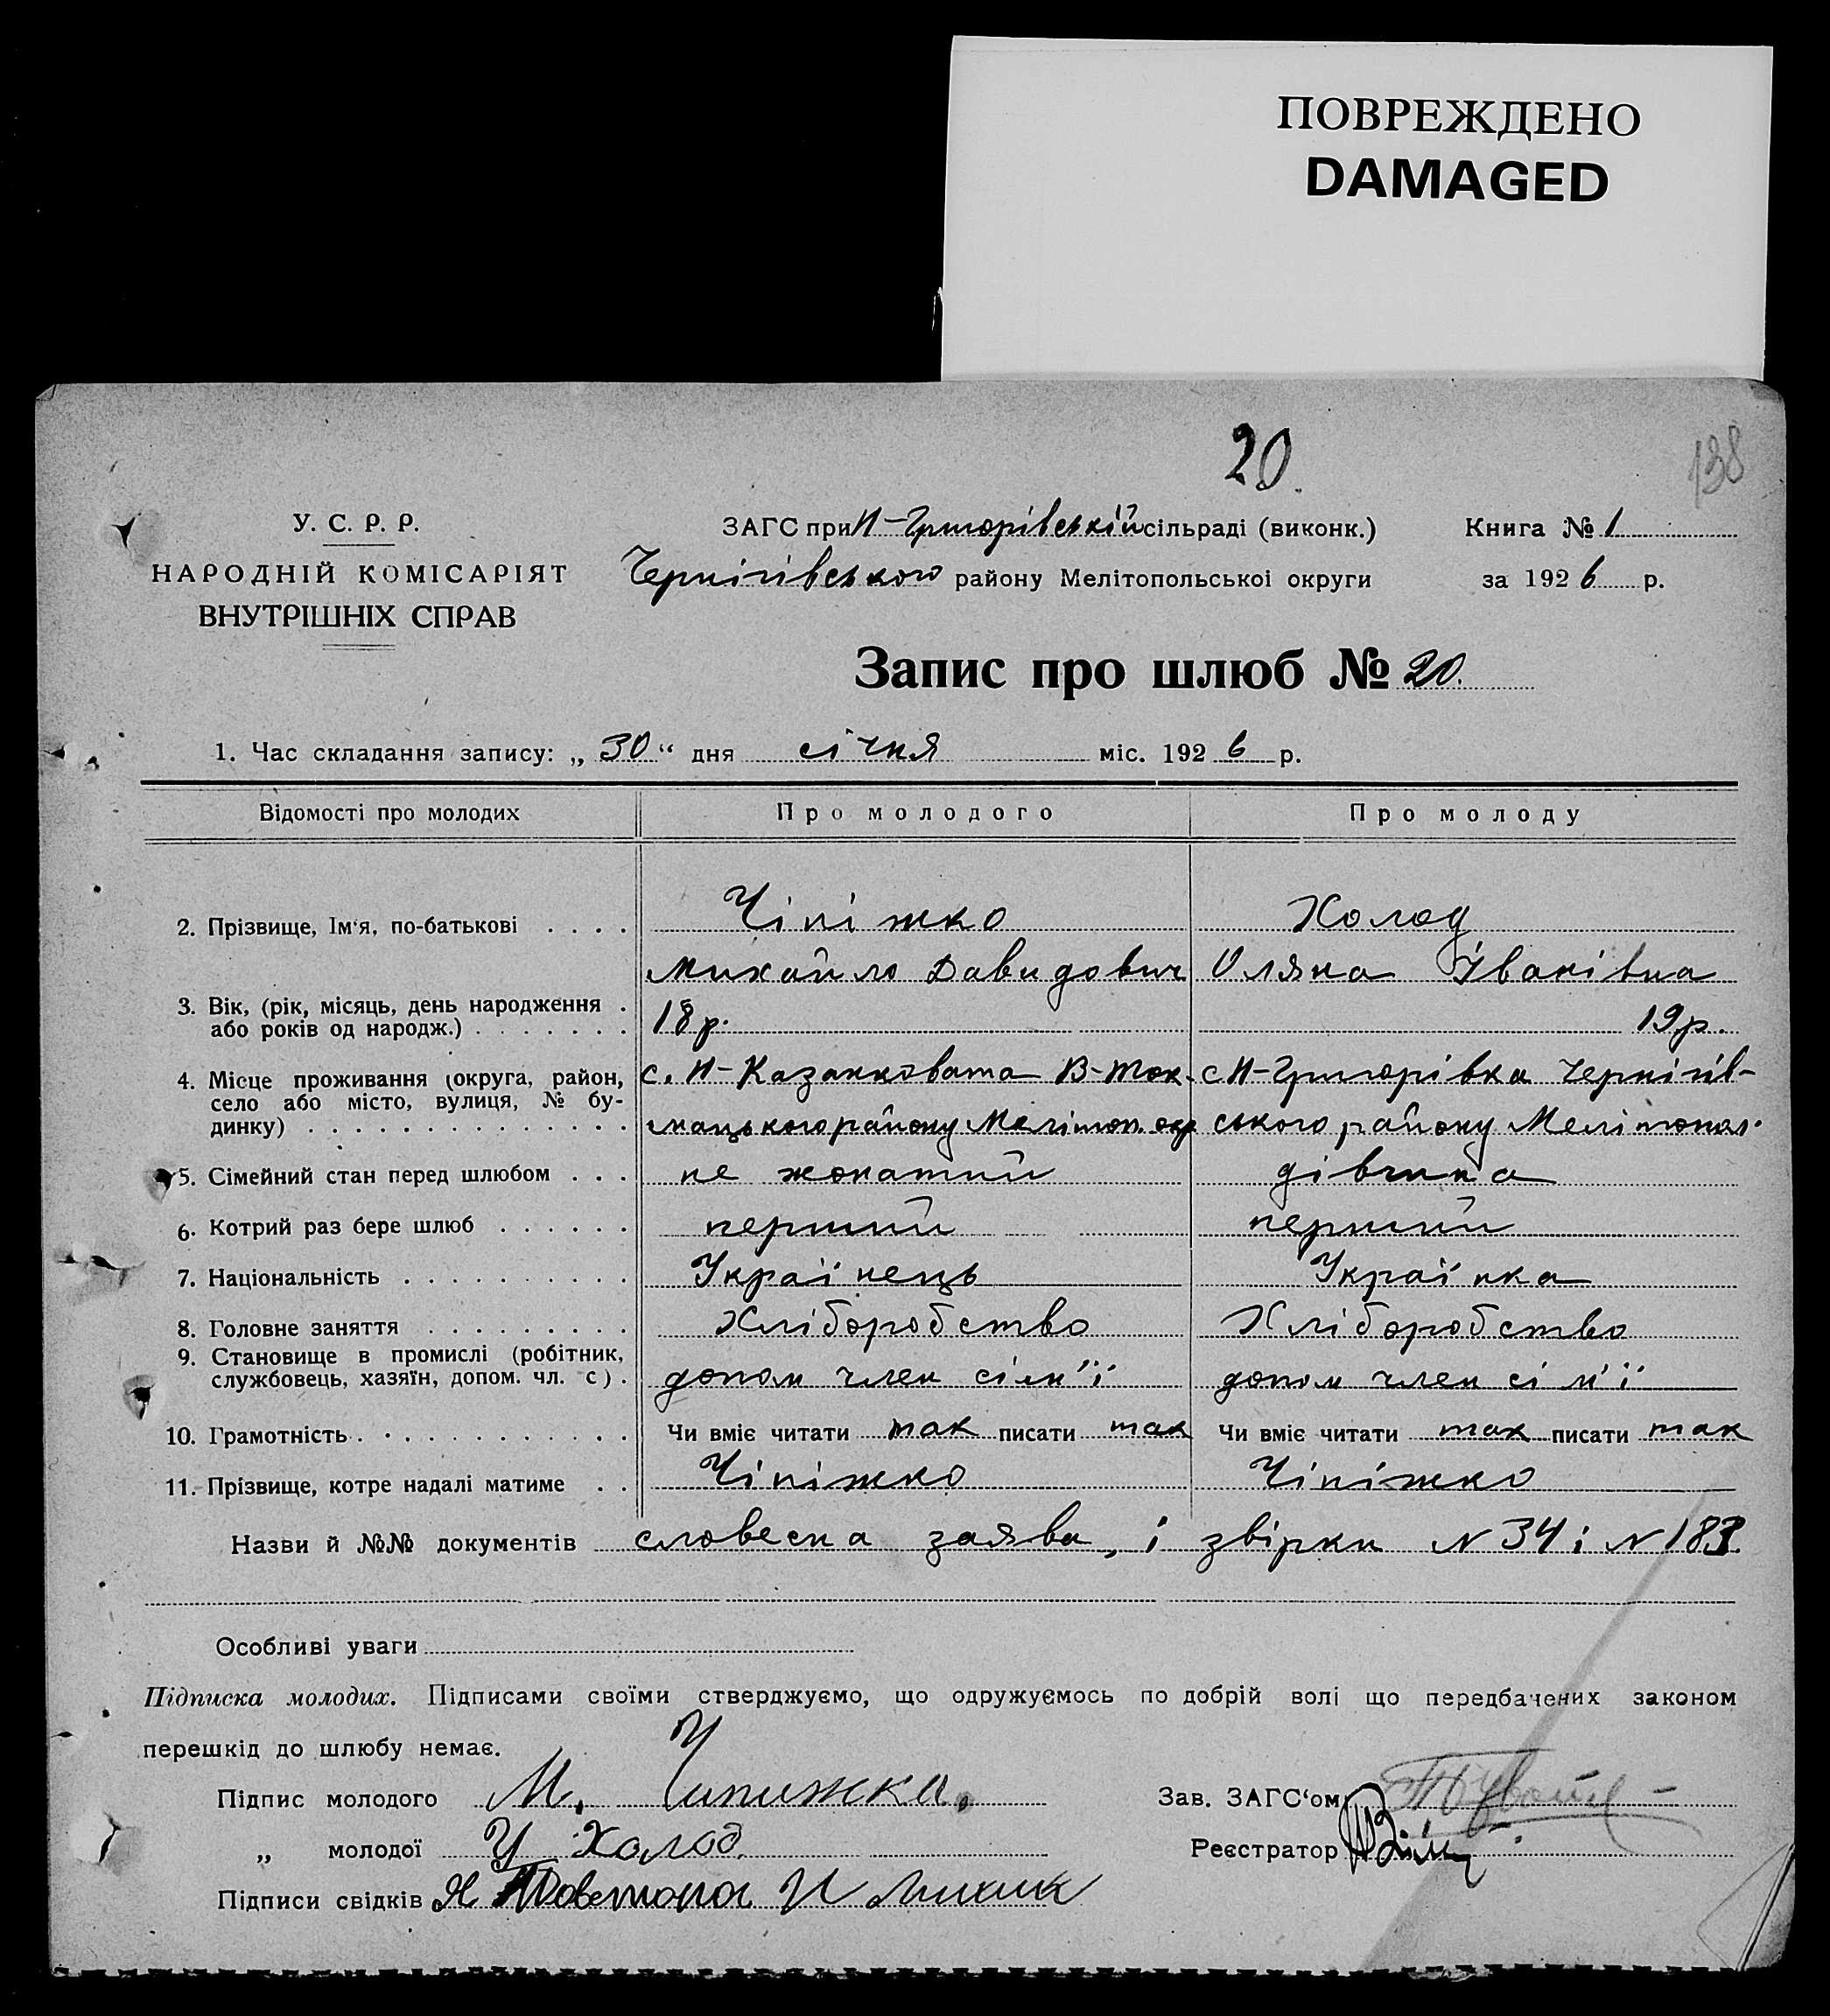 ПОВРЕЖДЕНО
DAMAGED
20.
138
У. С. Р. Р.
НАРОДНІЙ КОМІСАРІЯТ
ВНУТРІШНІХ СПРАВ
ЗАГС при Н-Григорівській сільраді (виконк.)
Чернігівського району Мелітопольської округи
Книга № 1
за 1926 р.
Запис про шлюб № 20.
1. Час складання запису: „30“ дня січня міс. 1926 р.
Відомості про молодих Про молодого Про молоду
2. Прізвище, Ім'я, по-батькові . . . . Чіпіжко Холод
Михайло Давидович Оляна Іванівна
3. Вік, (рік, місяць, день народження . або років од народж.) . . . . . . . 18 р. 19 р.
4. Місце проживання (округа, район, с. Н-Казанковата В-Ток- с Н-Григорівка Чернігів-
село або місто, вулиця, № бу-
динку) . . . . . . . . . . . . . . мацького району Мелітоп. окр ського району Мелітопол.
5. Сімейний стан перед шлюбом . . . не жонатий дівчина
6. Котрий раз бере шлюб . . . . . . перший перший
7. Національність . . . . . . . . . . Українець Українка
8. Головне заняття . . . . . . . . . Хліборобство Хліборобство
9. Становище в промислі (робітник,
службовець, хазяїн, допом. чл. с) . допом член сім'ї допом член сім'ї
10. Грамотність . . . . . . . . . . . Чи вміє читати так писати так Чи вміє читати так писати так
11. Прізвище, котре надалі матиме . . Чіпіжко Чіпіжко
Назви й №№ документів словесна заява, і звірки N 34 і N 183.
Особливі уваги
Підписка молодих. Підписами своїми стверджуємо, що одружуємось по добрій волі що передбачених законом
перешкід до шлюбу немає.
Підпис молодого М. Чипижка.
Зав. ЗАГС'ом
„ молодої У Холод.
Реєстратор
Підписи свідків